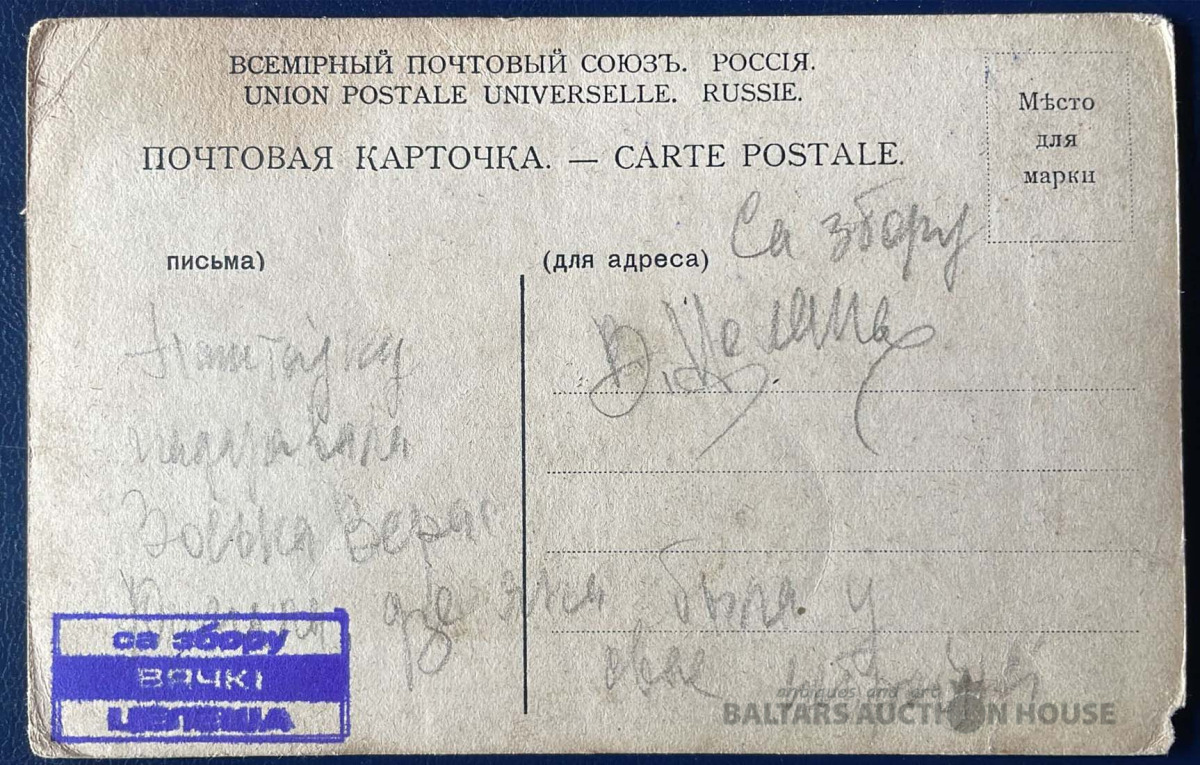 ВСЕМІРНЫЙ ПОЧТОВЫЙ СОЮЗЪ. РОССІЯ.
UNION POSTALE UNIVERSELLE. RUSSIE.
ПОЧТОВАЯ КАРТОЧКА. — CARTE POSTALE.
Мѣсто
для
марки
письма)
(для адреса)
Са збору
Паштоўку
падаравала
Зоська Верас
дзе яна была у
са збору
ВЯЧКІ
ЦЕЛЕША
antiques and art
BALTARS AUCTION HOUSE